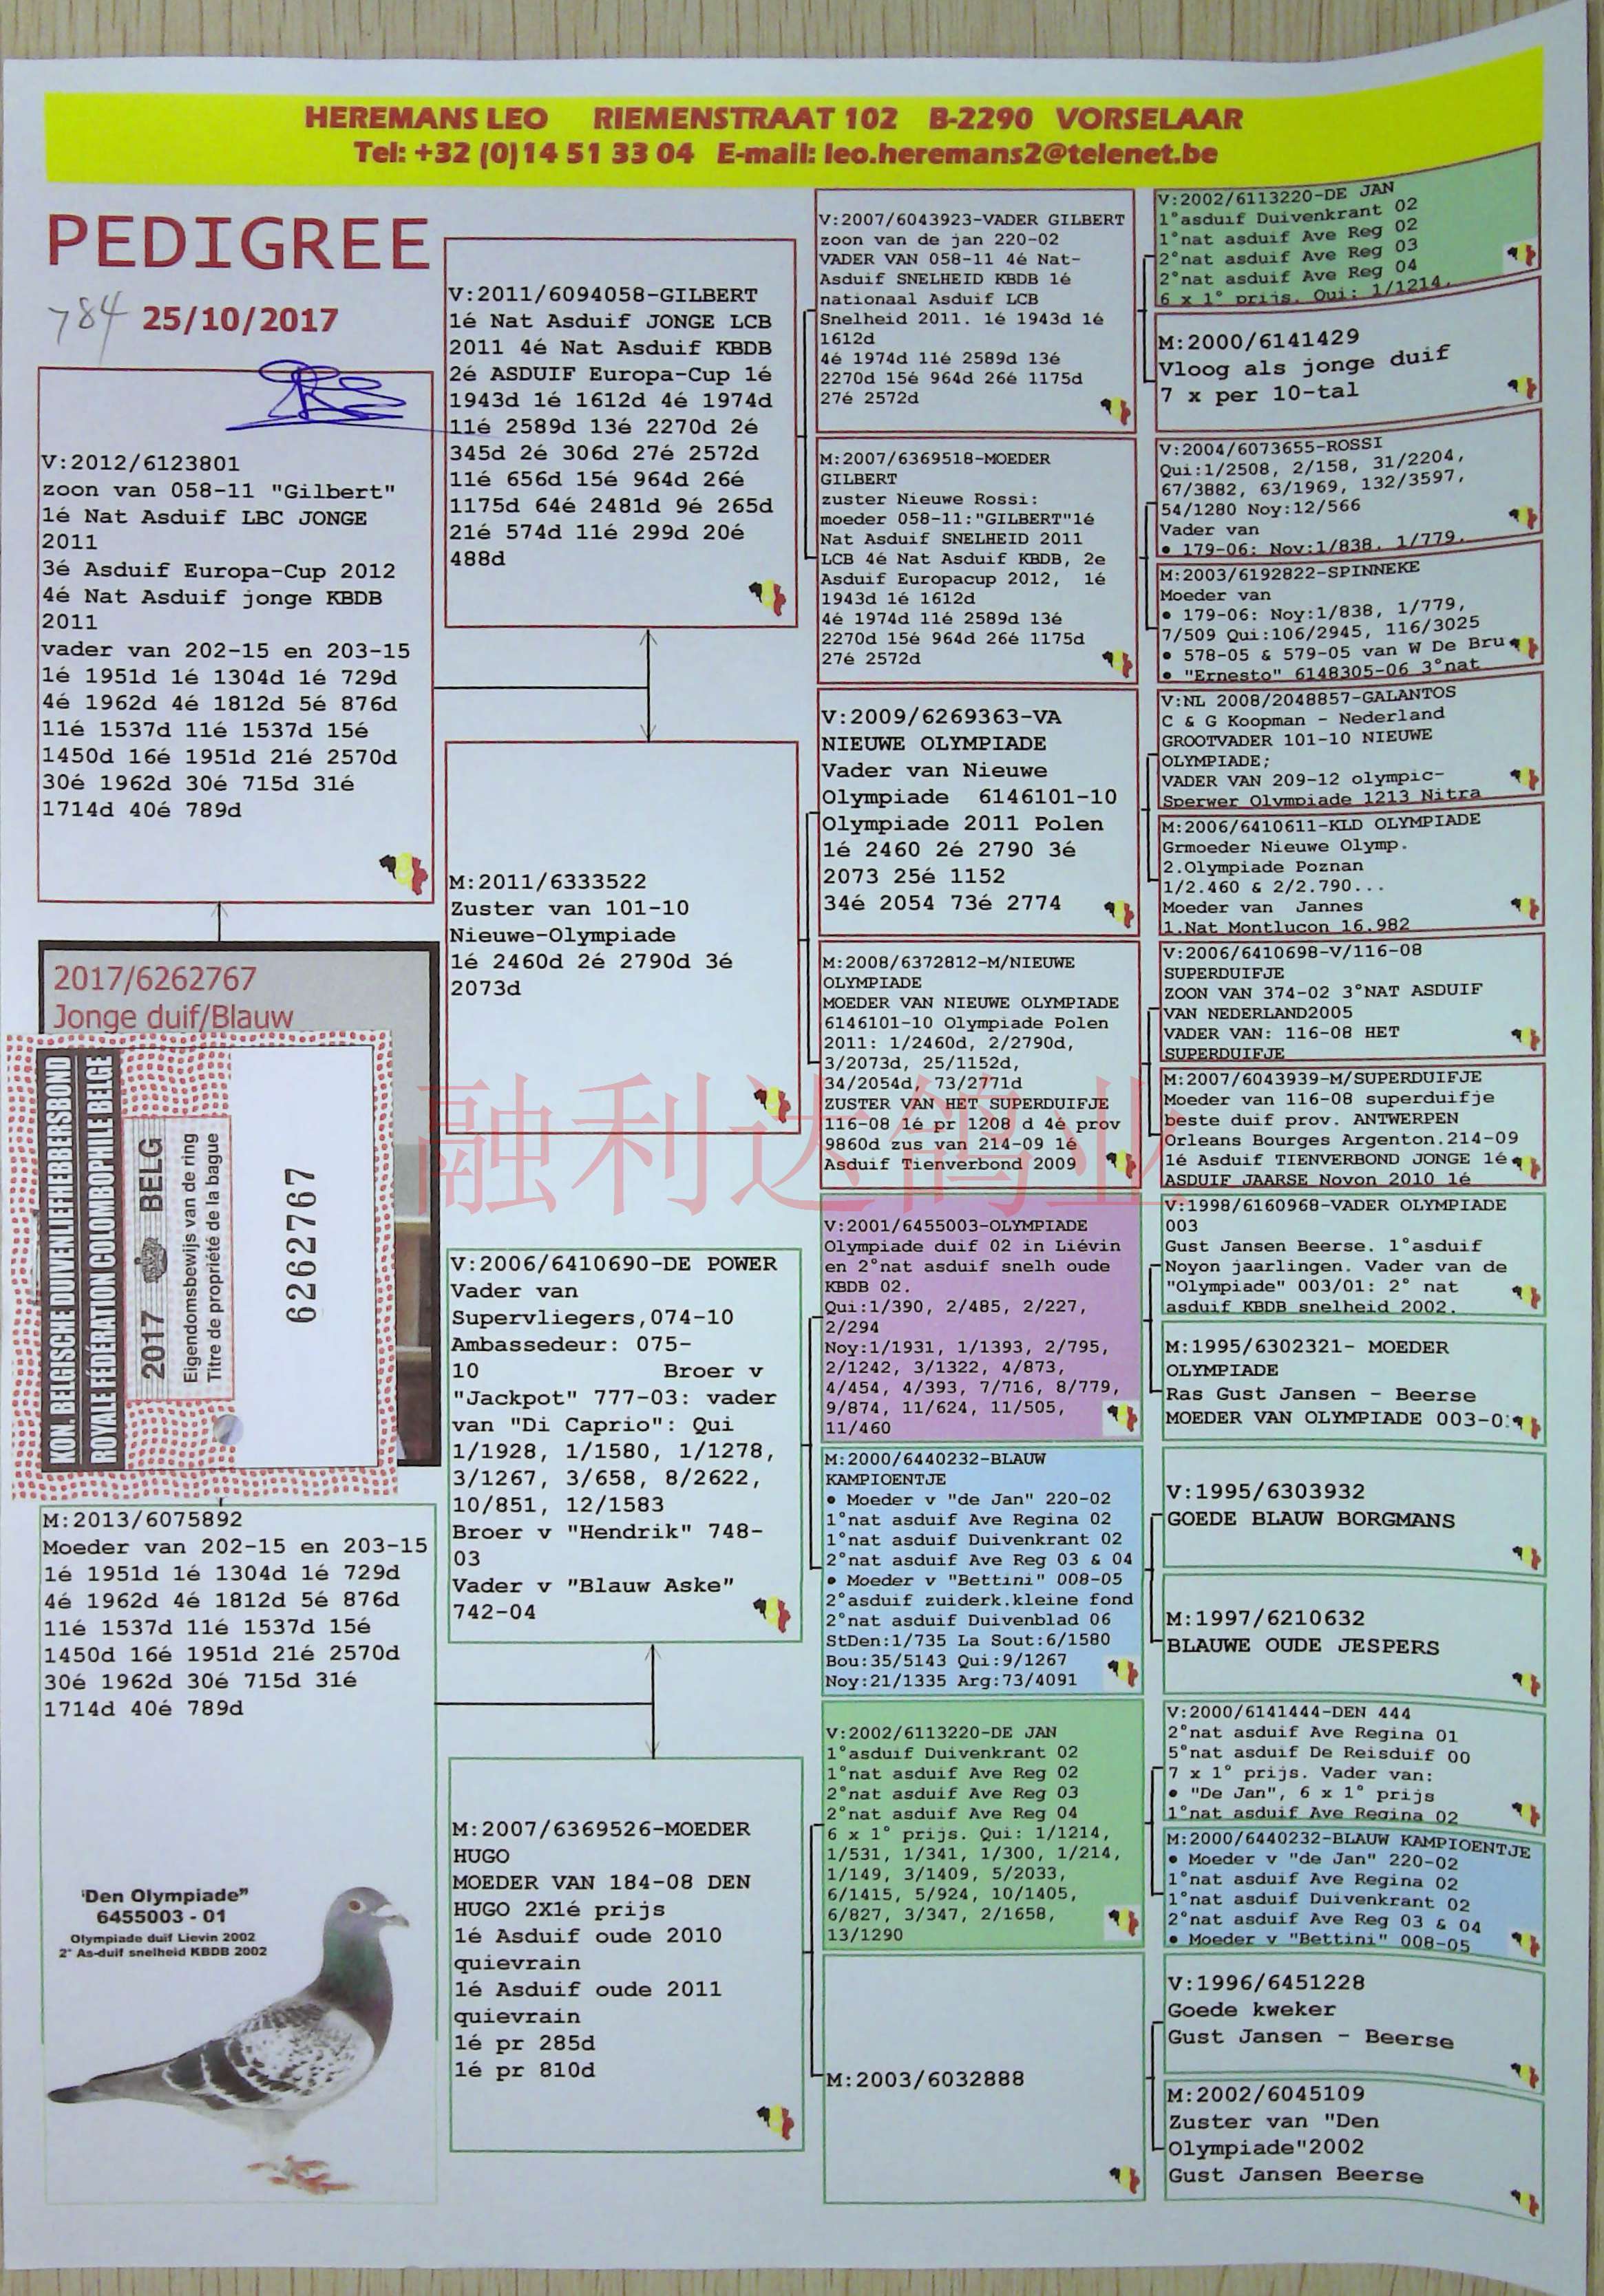 HEREMANS LEO RIEMENSTRAAT 102 B-2290 VORSELAAR
Tel: +32 (0)14 51 33 04 E-mail: leo.heremans2@telenet.be
PEDIGREE
784 25/10/2017
V:2012/6123801
zoon van 058-11 "Gilbert"
1é Nat Asduif LBC JONGE
2011
3é Asduif Europa-Cup 2012
4é Nat Asduif jonge KBDB
2011
vader van 202-15 en 203-15
1é 1951d 1é 1304d 1é 729d
4é 1962d 4é 1812d 5é 876d
11é 1537d 11é 1537d 15é
1450d 16é 1951d 21é 2570d
30é 1962d 30é 715d 31é
1714d 40é 789d
2017/6262767
Jonge duif/Blauw
KON. BELGISCHE DUIVENLIEFHEBBERSBOND
ROYALE FÉDÉRATION COLOMBOPHILE BELGE
2017 BELG
Eigendomsbewijs van de ring
Titre de propriété de la bague
6262767
M:2013/6075892
Moeder van 202-15 en 203-15
1é 1951d 1é 1304d 1é 729d
4é 1962d 4é 1812d 5é 876d
11é 1537d 11é 1537d 15é
1450d 16é 1951d 21é 2570d
30é 1962d 30é 715d 31é
1714d 40é 789d
'Den Olympiade"
6455003 - 01
Olympiade duif Lievin 2002
2° As-duif snelheid KBDB 2002
V:2011/6094058-GILBERT
1é Nat Asduif JONGE LCB
2011 4é Nat Asduif KBDB
2é ASDUIF Europa-Cup 1é
1943d 1é 1612d 4é 1974d
11é 2589d 13é 2270d 2é
345d 2é 306d 27é 2572d
11é 656d 15é 964d 26é
1175d 64é 2481d 9é 265d
21é 574d 11é 299d 20é
488d
M:2011/6333522
Zuster van 101-10
Nieuwe-Olympiade
1é 2460d 2é 2790d 3é
2073d
V:2006/6410690-DE POWER
Vader van
Supervliegers,074-10
Ambassedeur: 075-
10 Broer v
"Jackpot" 777-03: vader
van "Di Caprio": Qui
1/1928, 1/1580, 1/1278,
3/1267, 3/658, 8/2622,
10/851, 12/1583
Broer v "Hendrik" 748-
03
Vader v "Blauw Aske"
742-04
M:2007/6369526-MOEDER
HUGO
MOEDER VAN 184-08 DEN
HUGO 2X1é prijs
1é Asduif oude 2010
quievrain
1é Asduif oude 2011
quievrain
1é pr 285d
1é pr 810d
V:2007/6043923-VADER GILBERT
zoon van de jan 220-02
VADER VAN 058-11 4é Nat-
Asduif SNELHEID KBDB 1é
nationaal Asduif LCB
Snelheid 2011. 1é 1943d 1é
1612d
4é 1974d 11é 2589d 13é
2270d 15é 964d 26é 1175d
27é 2572d
M:2007/6369518-MOEDER
GILBERT
zuster Nieuwe Rossi:
moeder 058-11:"GILBERT"1é
Nat Asduif SNELHEID 2011
LCB 4é Nat Asduif KBDB, 2e
Asduif Europacup 2012, 1é
1943d 1é 1612d
4é 1974d 11é 2589d 13é
2270d 15é 964d 26é 1175d
27é 2572d
V:2009/6269363-VA
NIEUWE OLYMPIADE
Vader van Nieuwe
Olympiade 6146101-10
Olympiade 2011 Polen
1é 2460 2é 2790 3é
2073 25é 1152
34é 2054 73é 2774
M:2008/6372812-M/NIEUWE
OLYMPIADE
MOEDER VAN NIEUWE OLYMPIADE
6146101-10 Olympiade Polen
2011: 1/2460d, 2/2790d,
3/2073d, 25/1152d,
34/2054d, 73/2771d
ZUSTER VAN HET SUPERDUIFJE
116-08 1é pr 1208 d 4é prov
9860d zus van 214-09 1é
Asduif Tienverbond 2009
V:2001/6455003-OLYMPIADE
Olympiade duif 02 in Liévin
en 2°nat asduif snelh oude
KBDB 02.
Qui:1/390, 2/485, 2/227,
2/294
Noy:1/1931, 1/1393, 2/795,
2/1242, 3/1322, 4/873,
4/454, 4/393, 7/716, 8/779,
9/874, 11/624, 11/505,
11/460
M:2000/6440232-BLAUW
KAMPIOENTJE
• Moeder v "de Jan" 220-02
1°nat asduif Ave Regina 02
1°nat asduif Duivenkrant 02
2°nat asduif Ave Reg 03 & 04
• Moeder v "Bettini" 008-05
2°asduif zuiderk.kleine fond
2°nat asduif Duivenblad 06
StDen:1/735 La Sout:6/1580
Bou:35/5143 Qui:9/1267
Noy:21/1335 Arg:73/4091
V:2002/6113220-DE JAN
1°asduif Duivenkrant 02
1°nat asduif Ave Reg 02
2°nat asduif Ave Reg 03
2°nat asduif Ave Reg 04
6 x 1° prijs. Qui: 1/1214,
1/531, 1/341, 1/300, 1/214,
1/149, 3/1409, 5/2033,
6/1415, 5/924, 10/1405,
6/827, 3/347, 2/1658,
13/1290
M:2003/6032888
V:2002/6113220-DE JAN
1°asduif Duivenkrant 02
1°nat asduif Ave Reg 02
2°nat asduif Ave Reg 03
2°nat asduif Ave Reg 04
6 x 1° prijs. Qui: 1/1214,
M:2000/6141429
Vloog als jonge duif
7 x per 10-tal
V:2004/6073655-ROSSI
Qui:1/2508, 2/158, 31/2204,
67/3882, 63/1969, 132/3597,
54/1280 Noy:12/566
Vader van
• 179-06: Noy:1/838, 1/779,
M:2003/6192822-SPINNEKE
Moeder van
• 179-06: Noy:1/838, 1/779,
7/509 Qui:106/2945, 116/3025
• 578-05 & 579-05 van W De Bru
• "Ernesto" 6148305-06 3°nat
V:NL 2008/2048857-GALANTOS
C & G Koopman - Nederland
GROOTVADER 101-10 NIEUWE
OLYMPIADE;
VADER VAN 209-12 olympic-
Sperwer Olympiade 1213 Nitra
M:2006/6410611-KLD OLYMPIADE
Grmoeder Nieuwe Olymp.
2.Olympiade Poznan
1/2.460 & 2/2.790...
Moeder van Jannes
1.Nat Montlucon 16.982
V:2006/6410698-V/116-08
SUPERDUIFJE
ZOON VAN 374-02 3°NAT ASDUIF
VAN NEDERLAND2005
VADER VAN: 116-08 HET
SUPERDUIFJE
M:2007/6043939-M/SUPERDUIFJE
Moeder van 116-08 superduifje
beste duif prov. ANTWERPEN
Orleans Bourges Argenton.214-09
1é Asduif TIENVERBOND JONGE 1é
ASDUIF JAARSE Noyon 2010 1é
V:1998/6160968-VADER OLYMPIADE
003
Gust Jansen Beerse. 1°asduif
Noyon jaarlingen. Vader van de
"Olympiade" 003/01: 2° nat
asduif KBDB snelheid 2002.
M:1995/6302321- MOEDER
OLYMPIADE
Ras Gust Jansen - Beerse
MOEDER VAN OLYMPIADE 003-0
V:1995/6303932
GOEDE BLAUW BORGMANS
M:1997/6210632
BLAUWE OUDE JESPERS
V:2000/6141444-DEN 444
2°nat asduif Ave Regina 01
5°nat asduif De Reisduif 00
7 x 1° prijs. Vader van:
• "De Jan", 6 x 1° prijs
1°nat asduif Ave Regina 02
M:2000/6440232-BLAUW KAMPIOENTJE
• Moeder v "de Jan" 220-02
1°nat asduif Ave Regina 02
1°nat asduif Duivenkrant 02
2°nat asduif Ave Reg 03 & 04
• Moeder v "Bettini" 008-05
V:1996/6451228
Goede kweker
Gust Jansen - Beerse
M:2002/6045109
Zuster van "Den
Olympiade"2002
Gust Jansen Beerse
融利达鸽业